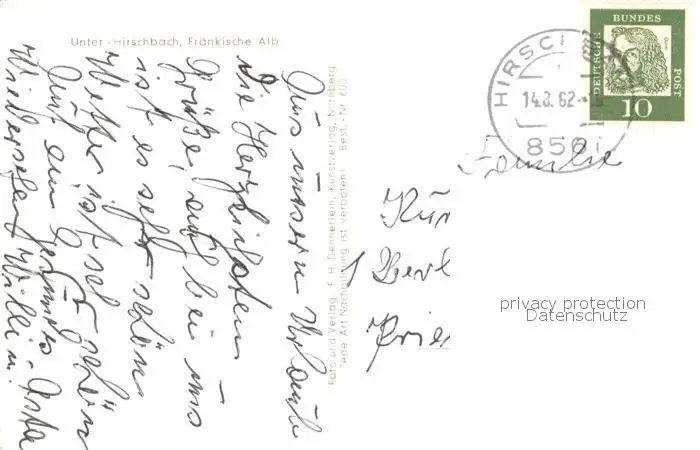 Unter-Hirschbach, Fränkische Alb
Aus unserm Urlaub
die Herzlichsten
Grüße, auch bei uns
ist es sehr schön
Wetter ist sehr schön
Auf ein Gesundes
Wiedersehen Willi u. Asta
Foto und Verlag: F. H. Dennerlein, Kunstverlag, Nürnberg
Jede Art Nachbildung ist verboten! Best.-Nr. 600
HIRSC
14.8.62
8561
DEUTSCHE
BUNDES
POST
10
Familie
Kur
Berl
Prie
privacy protection
Datenschutz